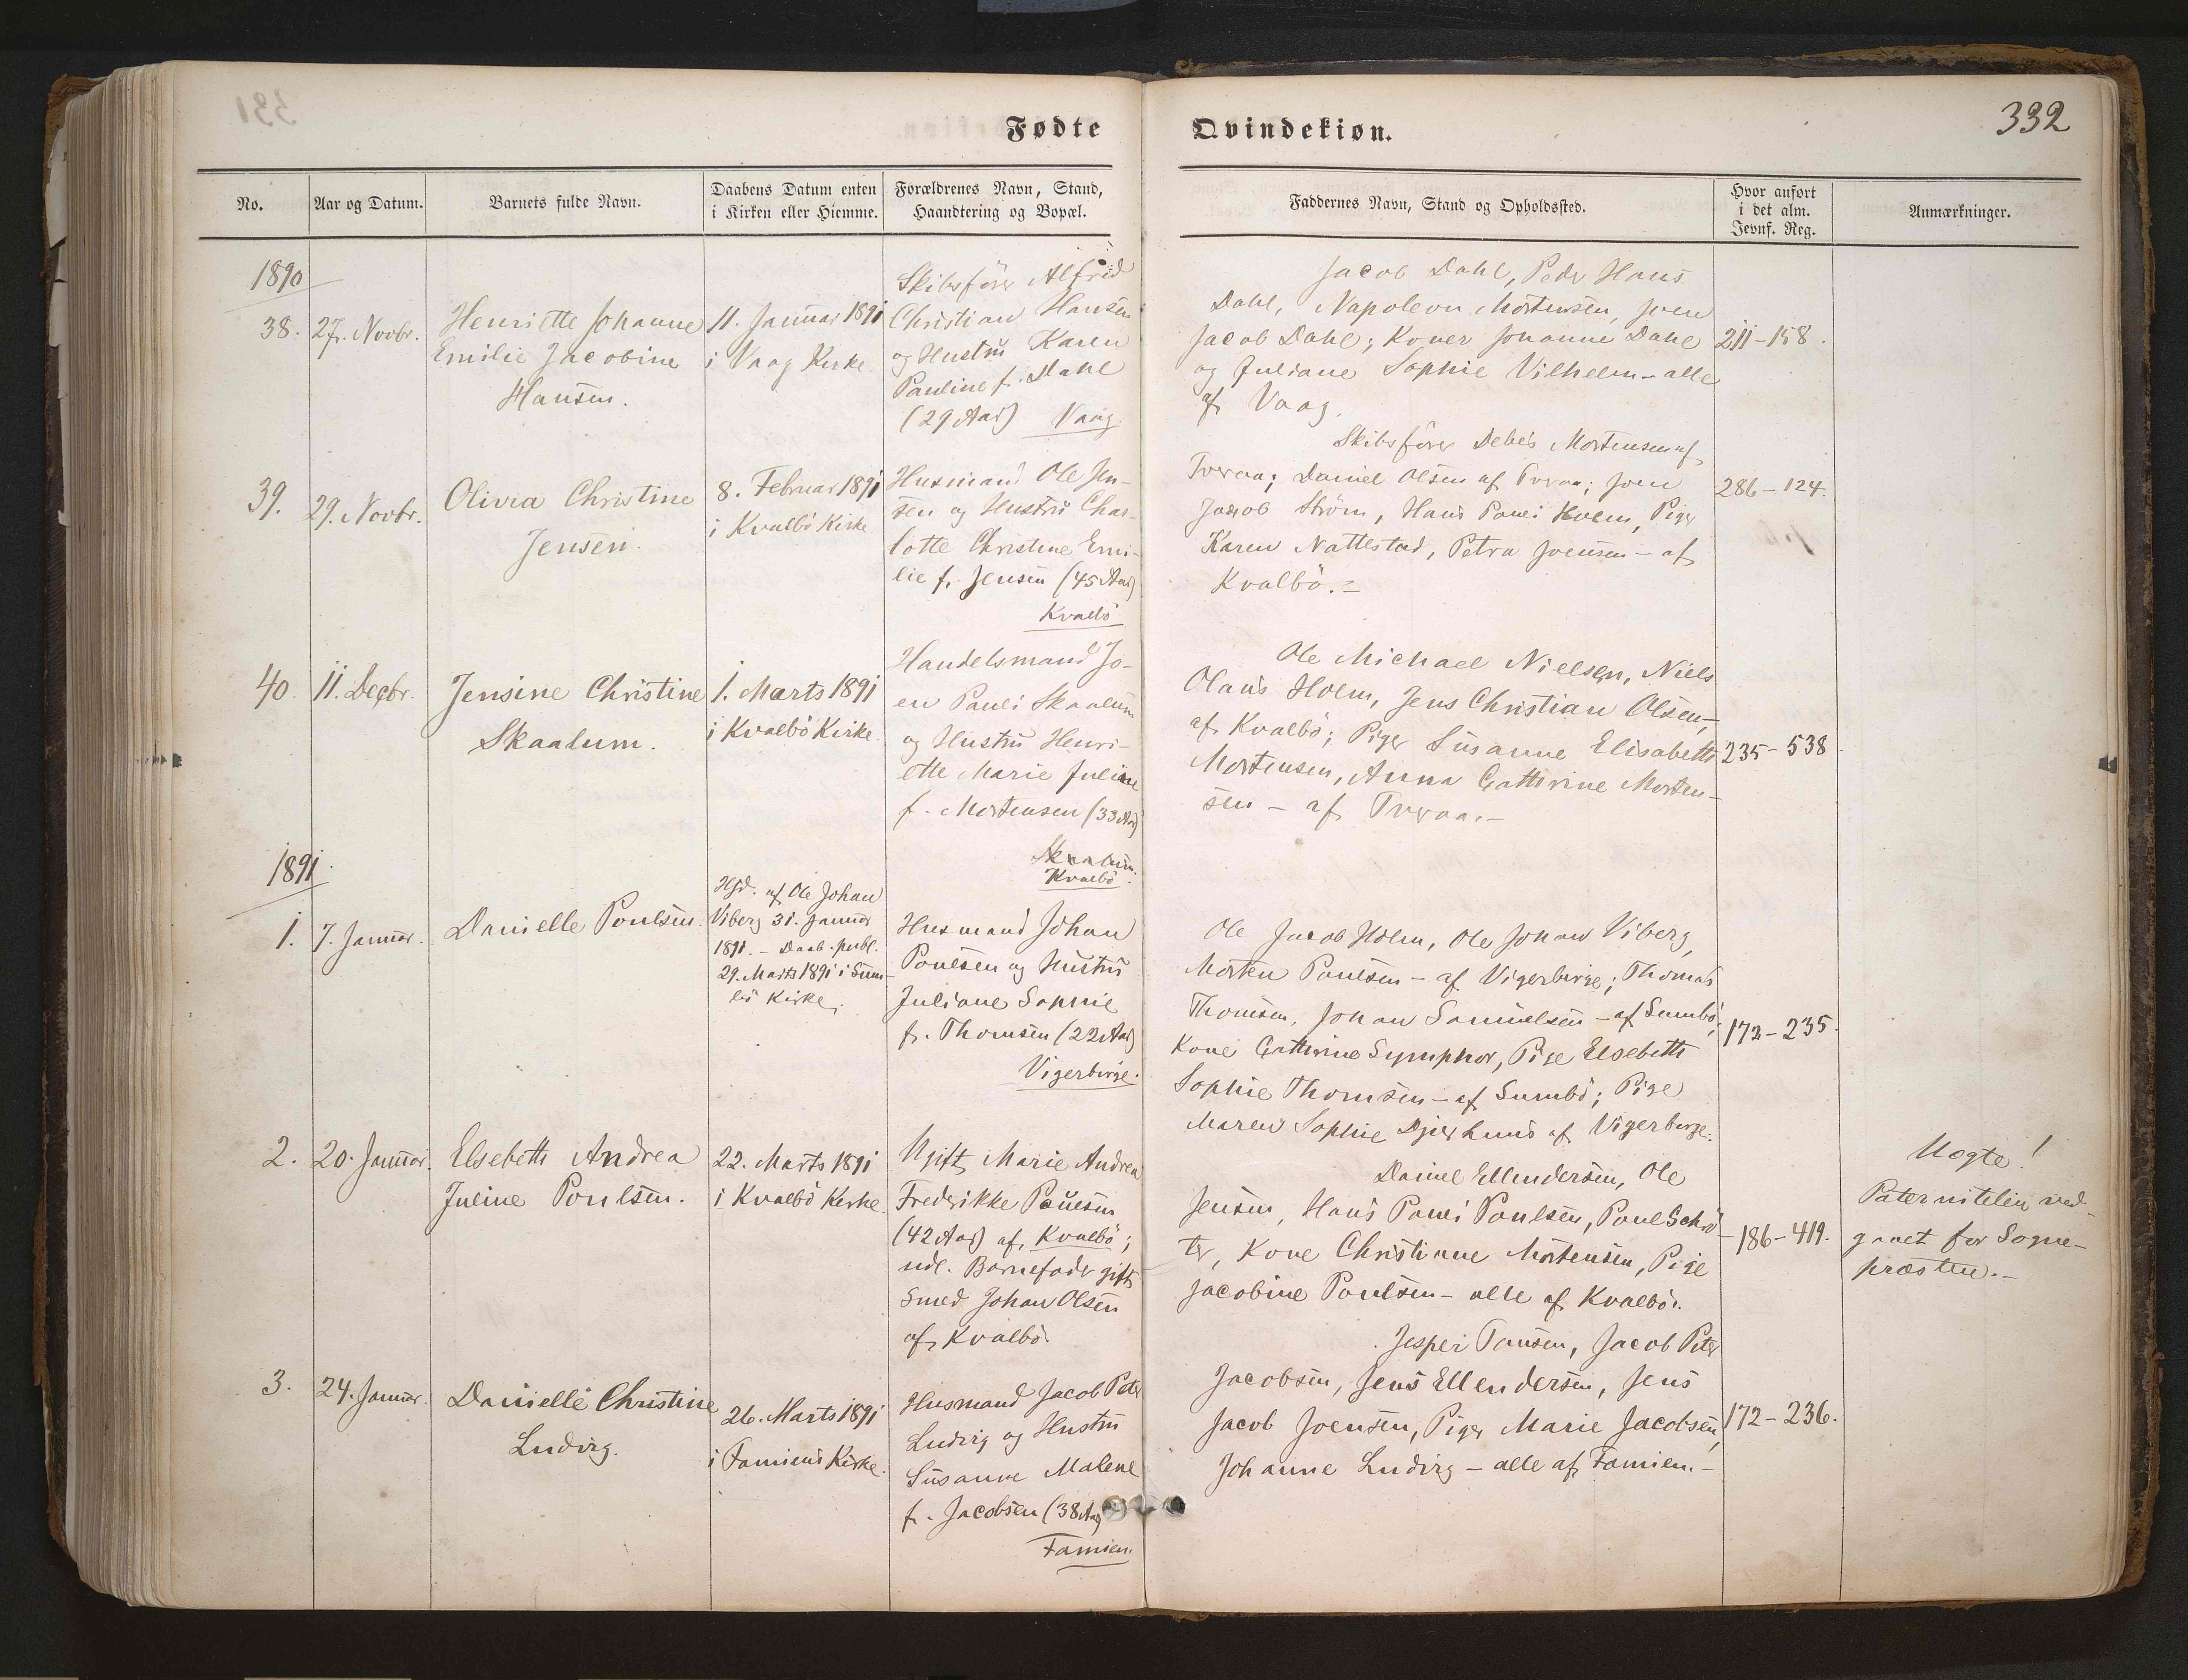 Fødte
Qvindekiøn.
332
No.
Aar og Datum.
Barnets fulde Navn.
Daabens Datum enten
i Kirken eller Hiemme.
Forældrenes Navn, Stand,
Haandtering og Bopæl.
Faddernes Navn, Stand og Opholdssted.
Hvor anført
i det alm.
Jevnf. Reg.
Anmærkninger.
1890
38.
27. Novbr.
Henriette Johanne
Emilie Jacobine
Hansen.
11. Januar 1891
i Vaag Kirke.
Skibsfører Alfred
Christian Hansen
og Hustru Karen
Pauline f. Dahl
(29 Aar) Vaag
Jacob Dahl, Peder Hans
Dahl, Napoleon Mortensen, Joen
Jacob Dahl; Koner Johanne Dahl
og Juliane Sophie Vilhelm - alle
af Vaag.
211-158.
39.
29. Novbr.
Olivia Christine
Jensen.
8. Februar 1891
i Kvalbö Kirke
Husmand Ole Jen-
sen og Hustru Char-
lotte Christine Emi-
lie f. Jensen (45 Aar)
Kvalbö
Skibsfører Debes Mortensen af
Tveraa; Daniel Olsen af Tveraa; Joen
Jacob Ström, Hans Pauli Holm, Piger
Karen Nattestad, Petra Joensen - af
Kvalbö.-
286-124.
40.
11. Decbr.
Jensine Christine
Skaalum.
1. Marts 1891
i Kvalbö Kirke.
Handelsmand Jo-
en Pauli Skaalum
og Hustru Henri-
ette Marie Juliane
f. Mortensen (33 Aar)
Skaalum.
Kvalbö.
Ole Michael Nielsen, Niels
Olaus Holm, Jens Christian Olsen,-
af Kvalbö; Piger Susanne Elisabeth
Mortensen, Anna Cathrine Morten-
sen - af Tveraa.-
235-538
1891.
1.
7. Januar.
Danielle Poulsen.
Hjd. af Ole Johan
Viberg 31. Januar
1891. - Daab. publ.
29. Marts 1891 i Sum-
bö Kirke.
Husmand Johan
Poulsen og Hustru
Juliane Sophie
f. Thomsen (22 Aar)
Vigerbirge.
Ole Jacob Holm, Ole Johan Viberg,
Morten Poulsen - af Vigerbirge; Thomas
Thomsen, Johan Samuelsen - af Sumbö;
Kone Cathrine Symphor, Pige Elsebeth
Sophie Thomsen - af Sumbö; Pige
Maren Sophie Djurhuus af Vigerbirge.
172-235.
2.
20. Januar.
Elsebeth Andrea
Juline Poulsen.
22. Marts 1891
i Kvalbö Kirke.
Ugift Marie Andrea
Frederikke Poulsen
(42 Aar) af Kvalbö;
udl. Barnefader gift
Smed Johan Olsen
af Kvalbö.
Daniel Ellendersen, Ole
Jensen, Hans Pauli Poulsen, Poul Schrö-
ter, Kone Christiane Mortensen, Pige
Jacobine Poulsen - alle af Kvalbö.
186-419.
Uægte!
Paterniteten ved-
gaaet for Sogne-
præsten.-
3.
24. Januar.
Danielle Christine
Ludvig.
26. Marts 1891
i Famiens Kirke.
Husmand Jacob Peter
Ludvig og Hustru
Susanne Malene
f. Jacobsen (38 Aar)
Famien.
Jesper Tausen, Jacob Peter
Jacobsen, Jens Ellendersen, Jens
Jacob Joensen, Piger Marie Jacobsen,
Johanne Ludvig - alle af Famien.-
172-236.